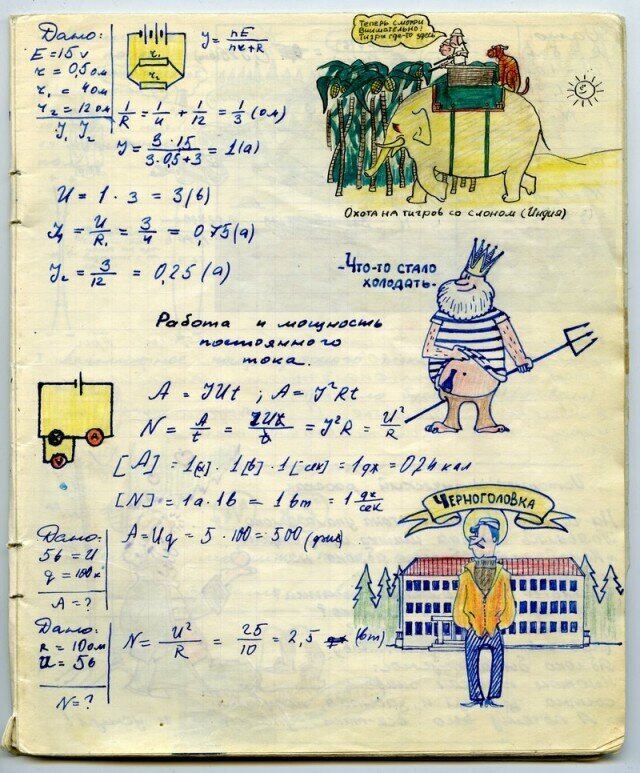 Дано:
E = 15 v
r = 0,5 ом
r₁ = 4 ом
r₂ = 12 ом
J₁ J₂
r₁
r₂
J = nE / nr+R
1/R = 1/4 + 1/12 = 1/3 (ом)
J = 3·15 / 3·0,5+3 = 1(а)
U = 1 · 3 = 3(в)
J₁ = U/R₁ = 3/4 = 0,75 (а)
J₂ = 3/12 = 0,25 (а)
Теперь смотри
внимательно!
Тигры где-то здесь
Охота на тигров со слоном (Индия)
- Что-то стало
холодать -
Работа и мощность
постоянного
тока.
A = JUt ; A = J²Rt
N = A/t = JUt/t = J²R = U²/R
А
V
[A] = 1[а] · 1[в] · 1[сек] = 1дж = 0,24 кал
[N] = 1а · 1в = 1вт = 1 дж/сек
Черноголовка
Дано:
5в = U
q = 100к
A = ?
A = Uq = 5 · 100 = 500 (дж)
Дано:
R = 10 ом
U = 5в
N = ?
N = U²/R = 25/10 = 2,5 (вт)